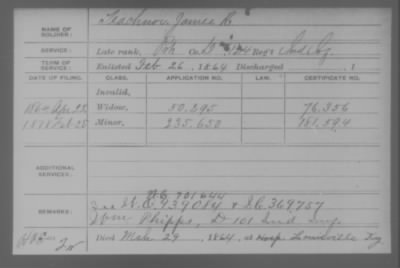 NAME OF SOLDIER: Teachnor, James R.
SERVICE: Late rank, Pvt. Co. D, 6 & 124 Reg't Ind. Inf.
TERM OF SERVICE: Enlisted Feb 26, 1864 Discharged , 1
DATE OF FILING. CLASS. APPLICATION NO. LAW. CERTIFICATE NO.
Invalid,
1864 Apr. 23. Widow, 50,295 76,356
1878 Feb 25 Minor, 235,650 181,594
ADDITIONAL SERVICES:
W.C. 701644
REMARKS: See W.O. 939014 & I.C. 369,757
Wm Phipps, D 101 Ind Inf.
Died Mch 29, 1864, at Louisville Ky